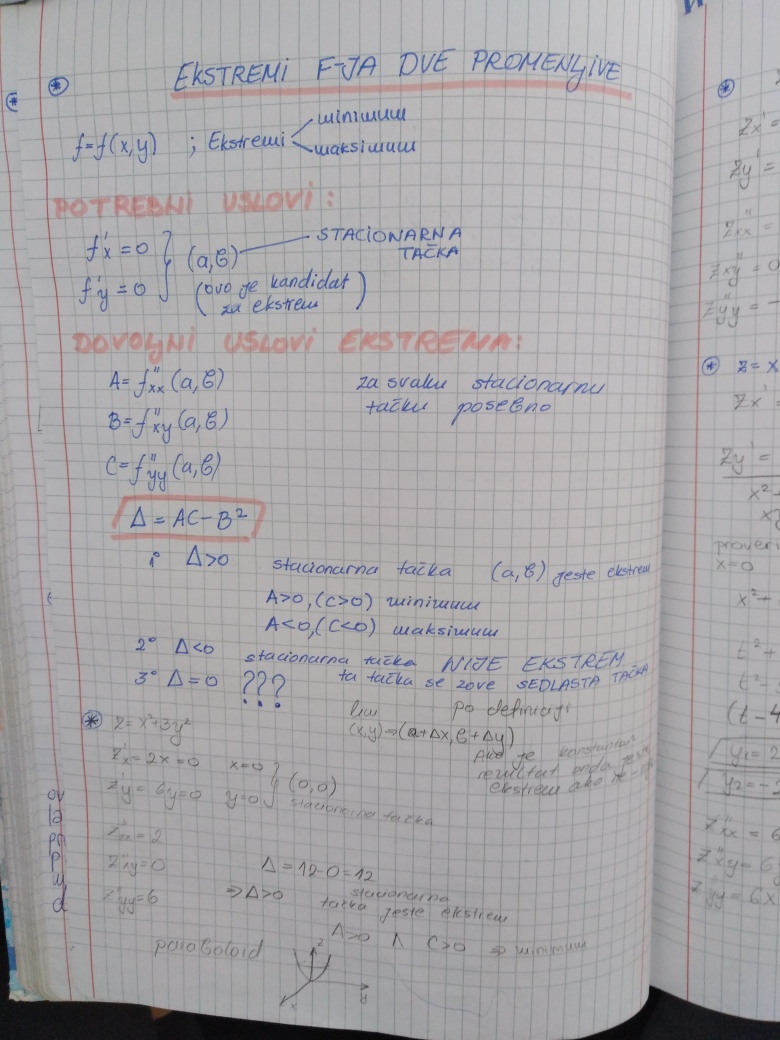 EKSTREMI F-JA DVE PROMENLJIVE
f=f(x,y) ; Ekstremi minimum
maksimum
POTREBNI USLOVI:
f'x=0
f'y=0
(a,b) STACIONARNA TAČKA
(ovo je kandidat
za ekstrem)
DOVOLJNI USLOVI EKSTREMA:
A=f''xx(a,b) za svaku stacionarnu
B=f''xy(a,b) tačku posebno
C=f''yy(a,b)
Δ=AC-B²
1° Δ>0 stacionarna tačka (a,b) jeste ekstrem
A>0,(C>0) minimum
A<0,(C<0) maksimum
2° Δ<0 stacionarna tačka NIJE EKSTREM
ta tačka se zove SEDLASTA TAČKA
3° Δ=0 ???
lim po definiciji
(x,y)→(a+Δx,b+Δy)
Ako je konstantan
rezultat onda jeste
ekstrem ako ne
z=x²+3y²
z'x=2x=0 x=0
z'y=6y=0 y=0
(0,0)
stacionarna tačka
z''xx=2
z''xy=0 Δ=12-0=12
z''yy=6 ⇒Δ>0 stacionarna
tačka jeste ekstrem
A>0 ∧ C>0 ⇒ minimum
paraboloid
z
x
y
zx'=
zy'=
zxx''=
zxy''=0
zyy''=-
z=x
zx'
zy'=
x²+
x=0
x²+
t²+
t²-
(t-4
y1=2
y2=-
z''xx=6
z''xy=6
z''yy=6x